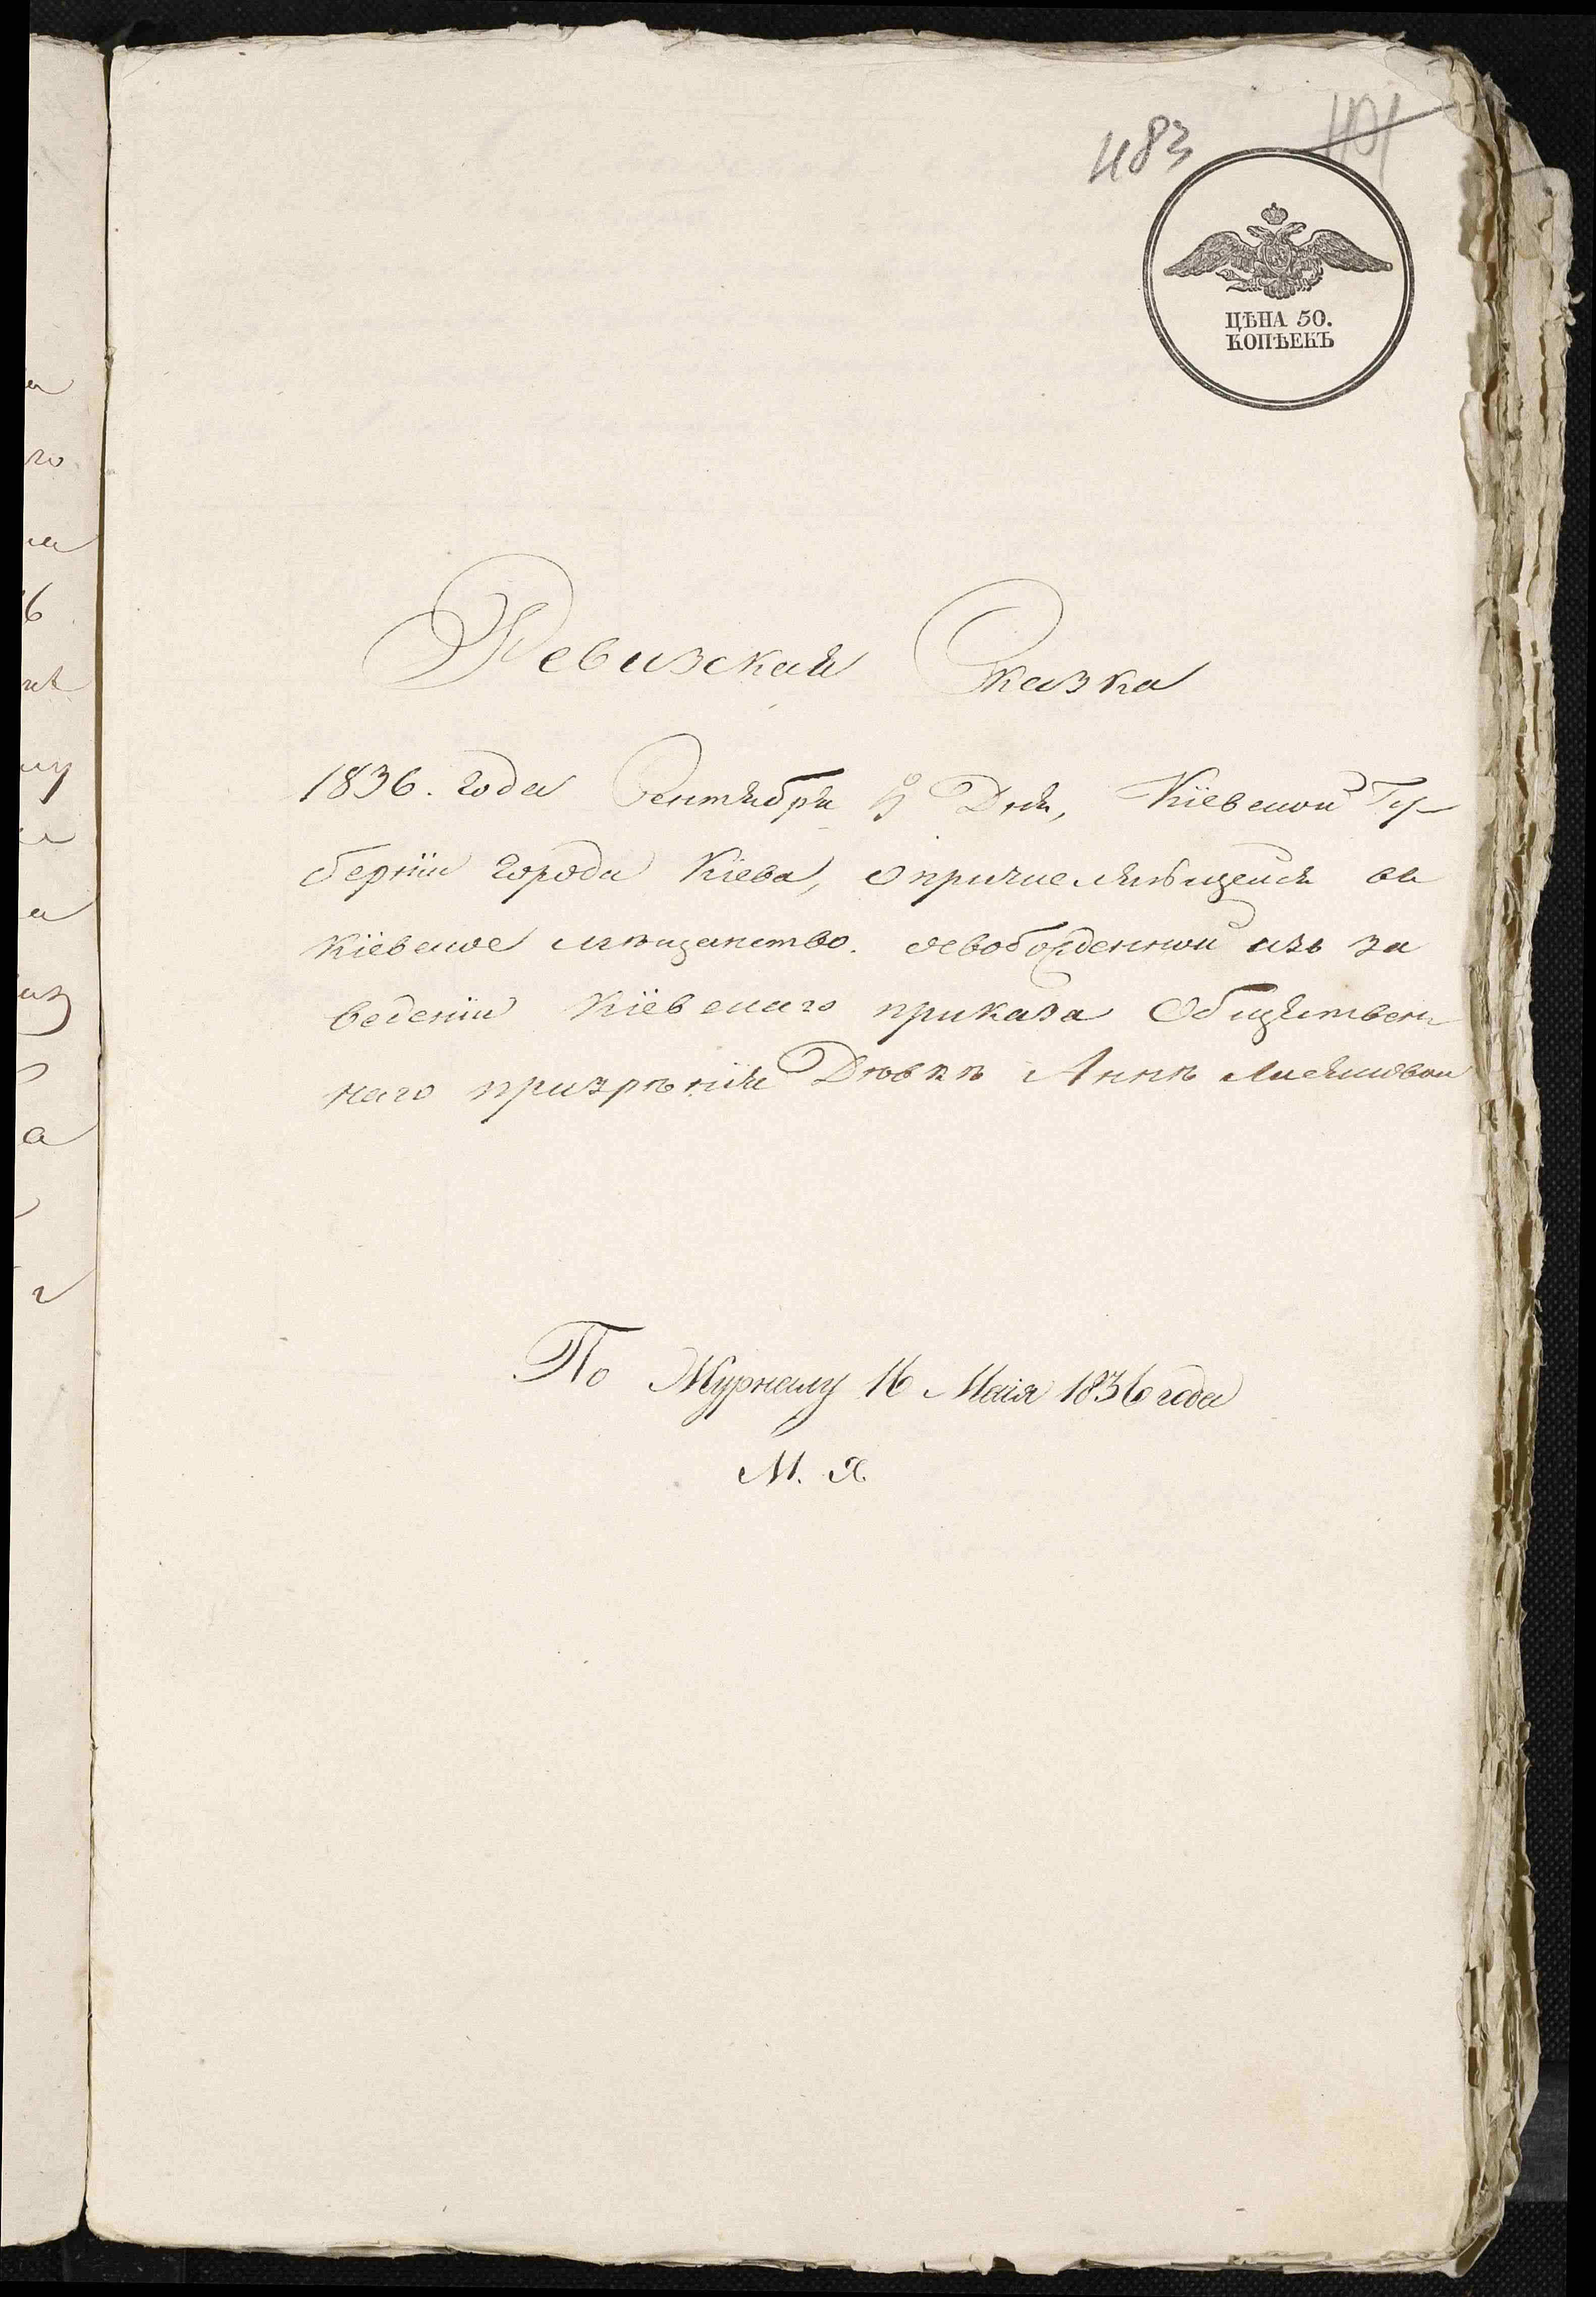 483 401
ЦѢНА 50.
КОПѢЕКЪ
Ревизская Сказка
1836. года Сентября Дня, Кіевской Гу-
берніи города Кіева, о причисляющейся въ
Кіевское мѣщанство. освобожденной изъ за
веденіи Кіевскаго приказа Обществен
наго призрѣнія Дѣвкѣ Аннѣ
По Журналу 16 Маія 1836 года
М. Я